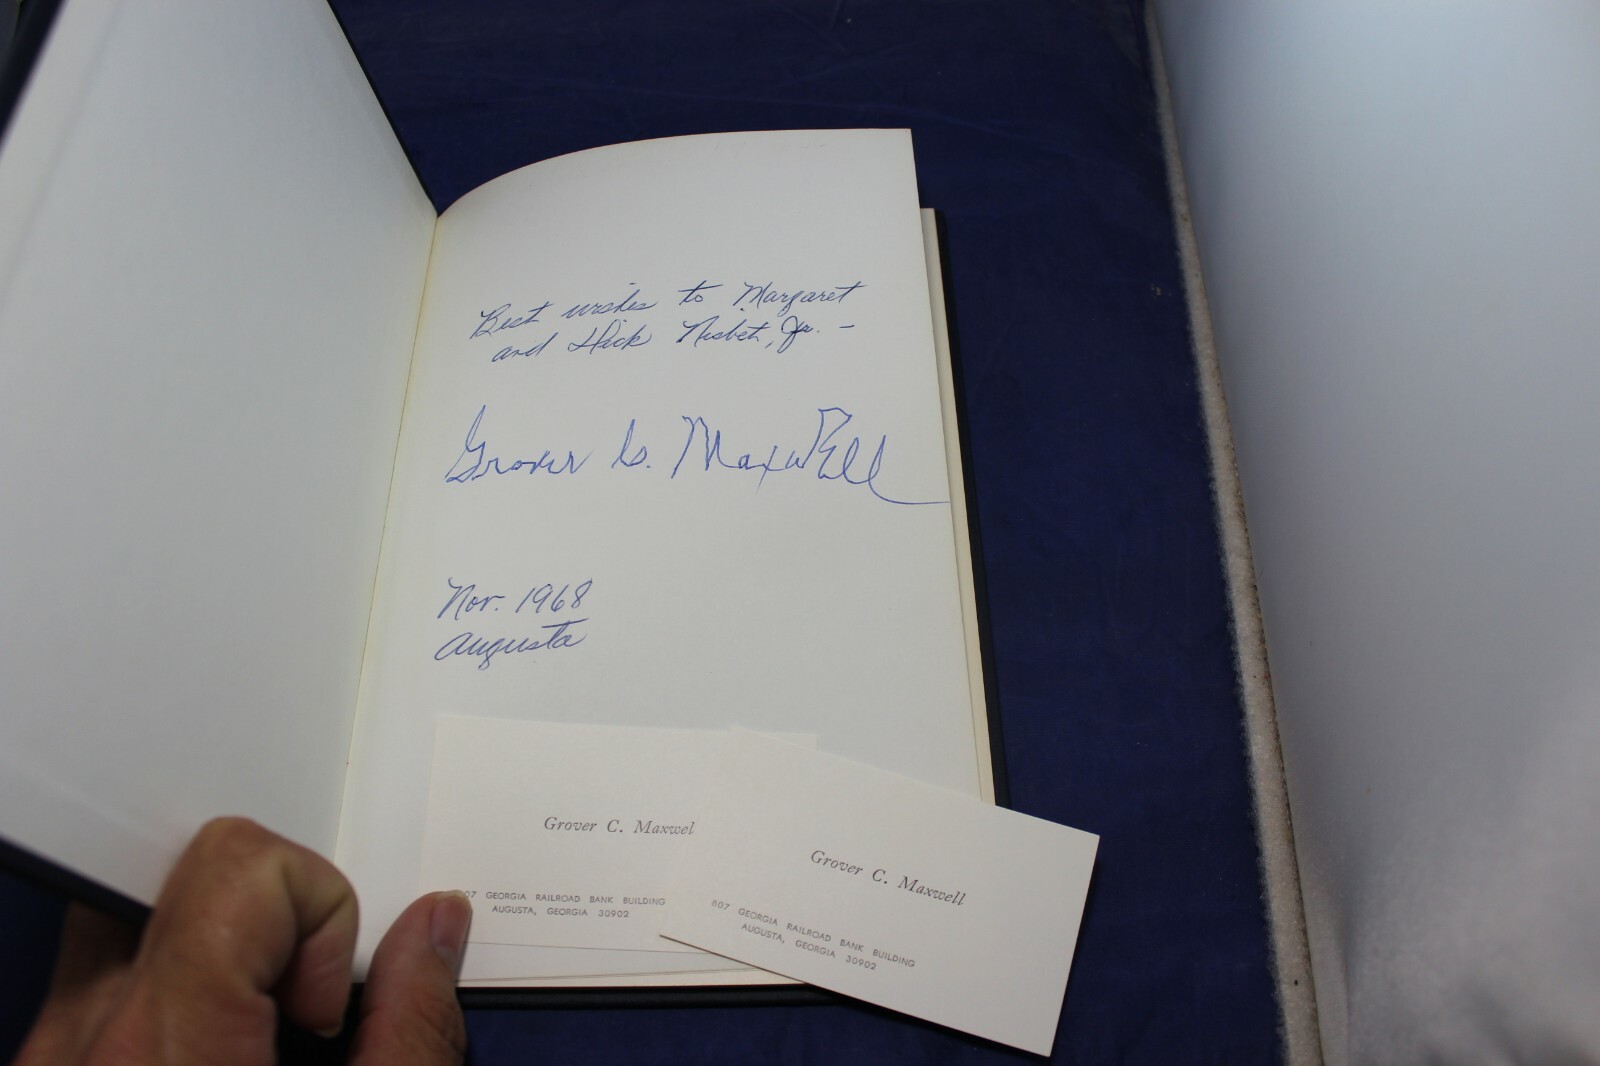 Best wishes to Margaret
and Dick Nisbet, Jr. –
Grover C. Maxwell
Nov. 1968
Augusta
Grover C. Maxwel
07 GEORGIA RAILROAD BANK BUILDING
AUGUSTA, GEORGIA 30902
Grover C. Maxwell
807 GEORGIA RAILROAD BANK BUILDING
AUGUSTA, GEORGIA 30902